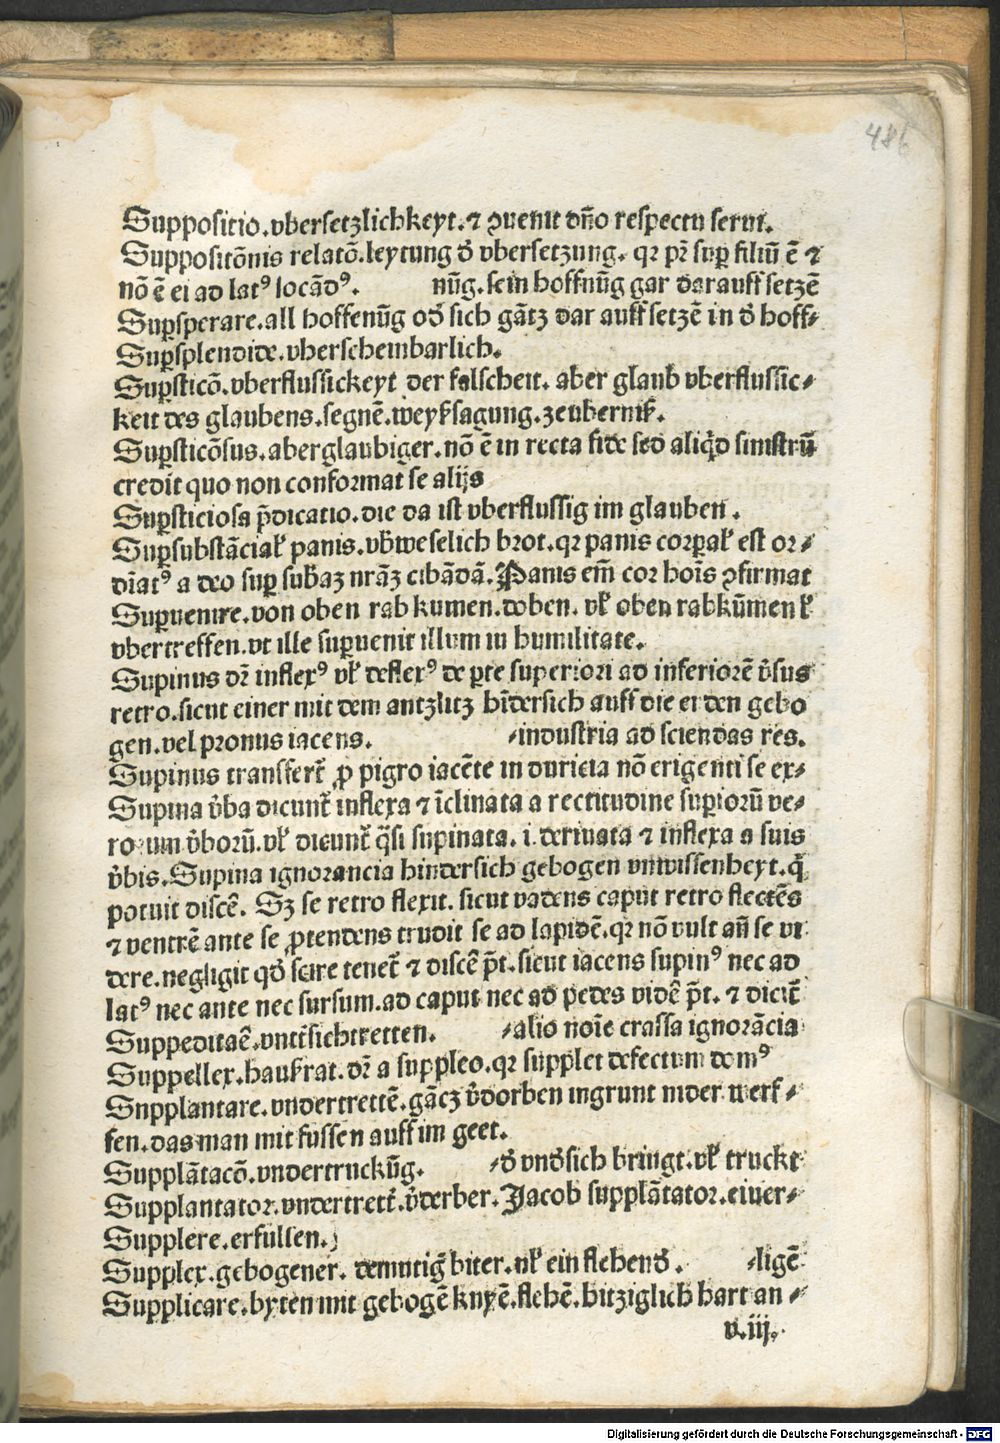 486
Suppositio.vbersetzlichkeyt.⁊ ꝯuenit dn̄o respectu serui.
Suppositōnis relatō.leytung ď vbersetzung. qꝛ pr̄ suꝑ filiū ē ⁊
nō ē ei ad latꝰ locādꝰ. nūg.sein hoffnūg gar darauff setzē
Suꝑsperare.all hoffenūg oď sich gātz dar auff setzē in ď hoff⸗
Suꝑsplendide.vberscheinbarlich.
Suꝑsticō.vberflussickeyt der falscheit. aber glaub vberflussic⸗
keit des glaubens.segnē.weyſsagung.zeuberniſ.
Suꝑsticōsus.aberglaubiger.nō ē in recta fide sed aliq̇d sinistrū
credit quo non conformat se alijs
Suꝑsticiosa p̄dicatio.die da ist vberflussig im glauben.
Suꝑsubstāciaƚ panis.vb̄weselich brot.qꝛ panis corꝑaƚ est or⸗
dīatꝰ a deo suꝑ sub̄az nrāz cibādā.Panis em̄ cor hoīs ꝯfirmat
Suꝑuenire.von oben rab kumen.doben. vƚ oben rabkūmen ƚ
vbertreffen.vt ille suꝑuenit illum in humilitate.
Supinus dr̄ inflexꝰ vƚ deflexꝰ de ꝑte superiori ad inferiorē v̓sus
retro.sicut einer mit dem antzlitz hīdersich auff die erden gebo
gen.vel pronus iacens. ⸗industria ad sciendas res.
Supinus transfert̄ ꝓ pigro iacēte in duricia nō erigenti se ex⸗
Supina v̓ba dicunt̄ inflexa ⁊ īclinata a rectitudine suꝑiorū ve⸗
rorum v̓borū.vƚ dicunt̄ q̄si supinata.i.deriuata ⁊ inflexa a suis
v̓bis.Supina ignorancia hindersich gebogen vnwissenheyt.q̄
potuit discē. Sꝫ se retro flexit. sicut vadens caput retro flectēs
⁊ ventrē ante se ꝓtendens trudit se ad lapidē.qꝛ nō vult an̄ se vi
dere.negligit qď scire tenet̄ ⁊ discē p̄t.sicut iacens supinꝰ nec ad
latꝰ nec ante nec sursum.ad caput nec ad pedes vidē p̄t. ⁊ dicit̄
Suppeditaē.vntersichtretten. ⸗alio noīe crassa ignorācia
Suppellex.hauſrat.dr̄ a suppleo.qꝛ supplet defectum domꝰ
Snpplantare.vndertrettē.gācz v̓dorben ingrunt nider werf⸗
fen.das man mit fussen auff im geet.
Supplātacō.vndertruckūg. ⸗ď vnďsich bringt.vƚ truckt
Supplantator.vndertrett̄.v̓derber.Jacob supplātator.einer⸗
Supplere.erfullen.)
Supplex.gebogener. demutiḡ biter.vƚ ein flehenď. ⸗ligē
Supplicare.byten mit gebogē knyē.flehē.hitziglich hart an⸗
v.iij.
Digitalisierung gefördert durch die Deutsche Forschungsgemeinschaft - DFG